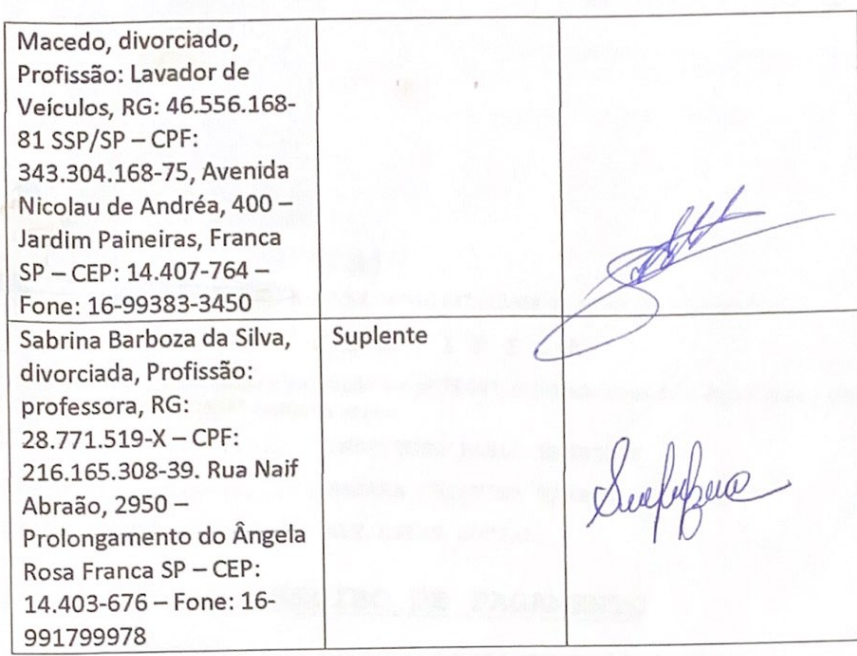 Macedo, divorciado,
Profissão: Lavador de
Veículos, RG: 46.556.168-
81 SSP/SP – CPF:
343.304.168-75, Avenida
Nicolau de Andréa, 400 –
Jardim Paineiras, Franca
SP – CEP: 14.407-764 –
Fone: 16-99383-3450
Sabrina Barboza da Silva,
divorciada, Profissão:
professora, RG:
28.771.519-X – CPF:
216.165.308-39. Rua Naif
Abraão, 2950 –
Prolongamento do Ângela
Rosa Franca SP – CEP:
14.403-676 – Fone: 16-
991799978
Suplente